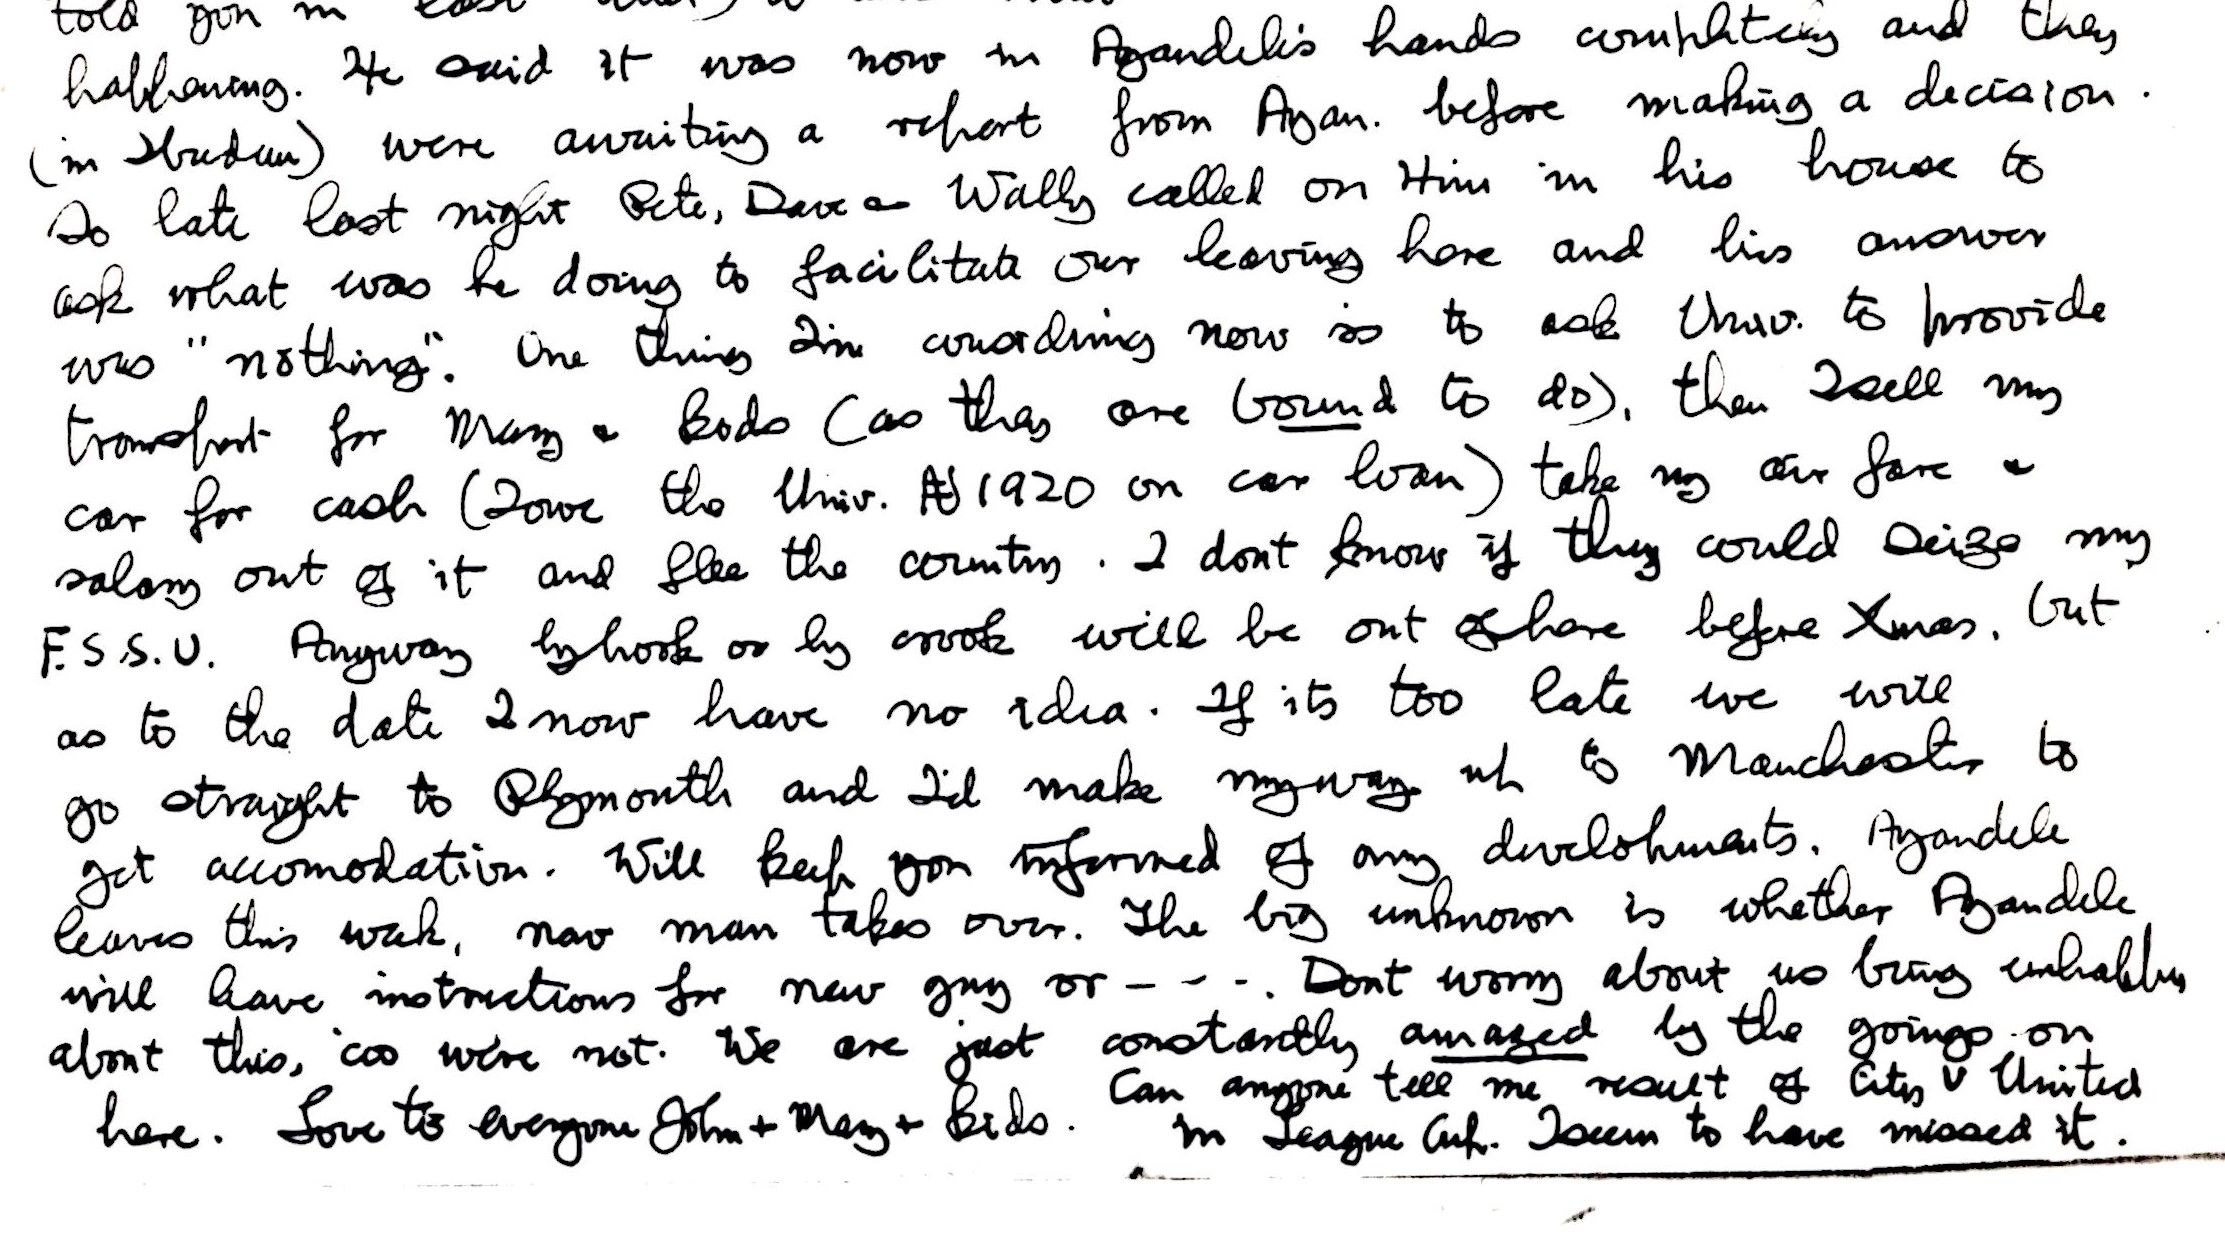 told you in last
happening. He said it was now in Ayandele's hands completely and they
(in Ibadan) were awaiting a report from Ayan. before making a decision.
So late last night Pete, Dave & Wally called on Him in his house to
ask what was he doing to facilitate our leaving here and his answer
was "nothing". One thing Im considering now is to ask Univ. to provide
transport for Mary & kids (as they are bound to do), then I sell my
car for cash (I owe the Univ. ₦1920 on car loan) take my air fare &
salary out of it and flee the country. I dont know if they could seize my
F.S.S.U. Anyway by hook or by crook will be out of here before Xmas, but
as to the date I now have no idea. If its too late we will
go straight to Plymouth and I'd make my way up to Manchester to
get accomodation. Will keep you informed of any developments. Ayandele
leaves this week, new man takes over. The big unknown is whether Ayandele
will leave instructions for new guy or - - - -. Dont worry about us being unhappy
about this, 'cos we're not. We are just constantly amazed by the goings on
here. Love to everyone John + Mary + Kids. Can anyone tell me result of City v United
in League Cup. I seem to have missed it.